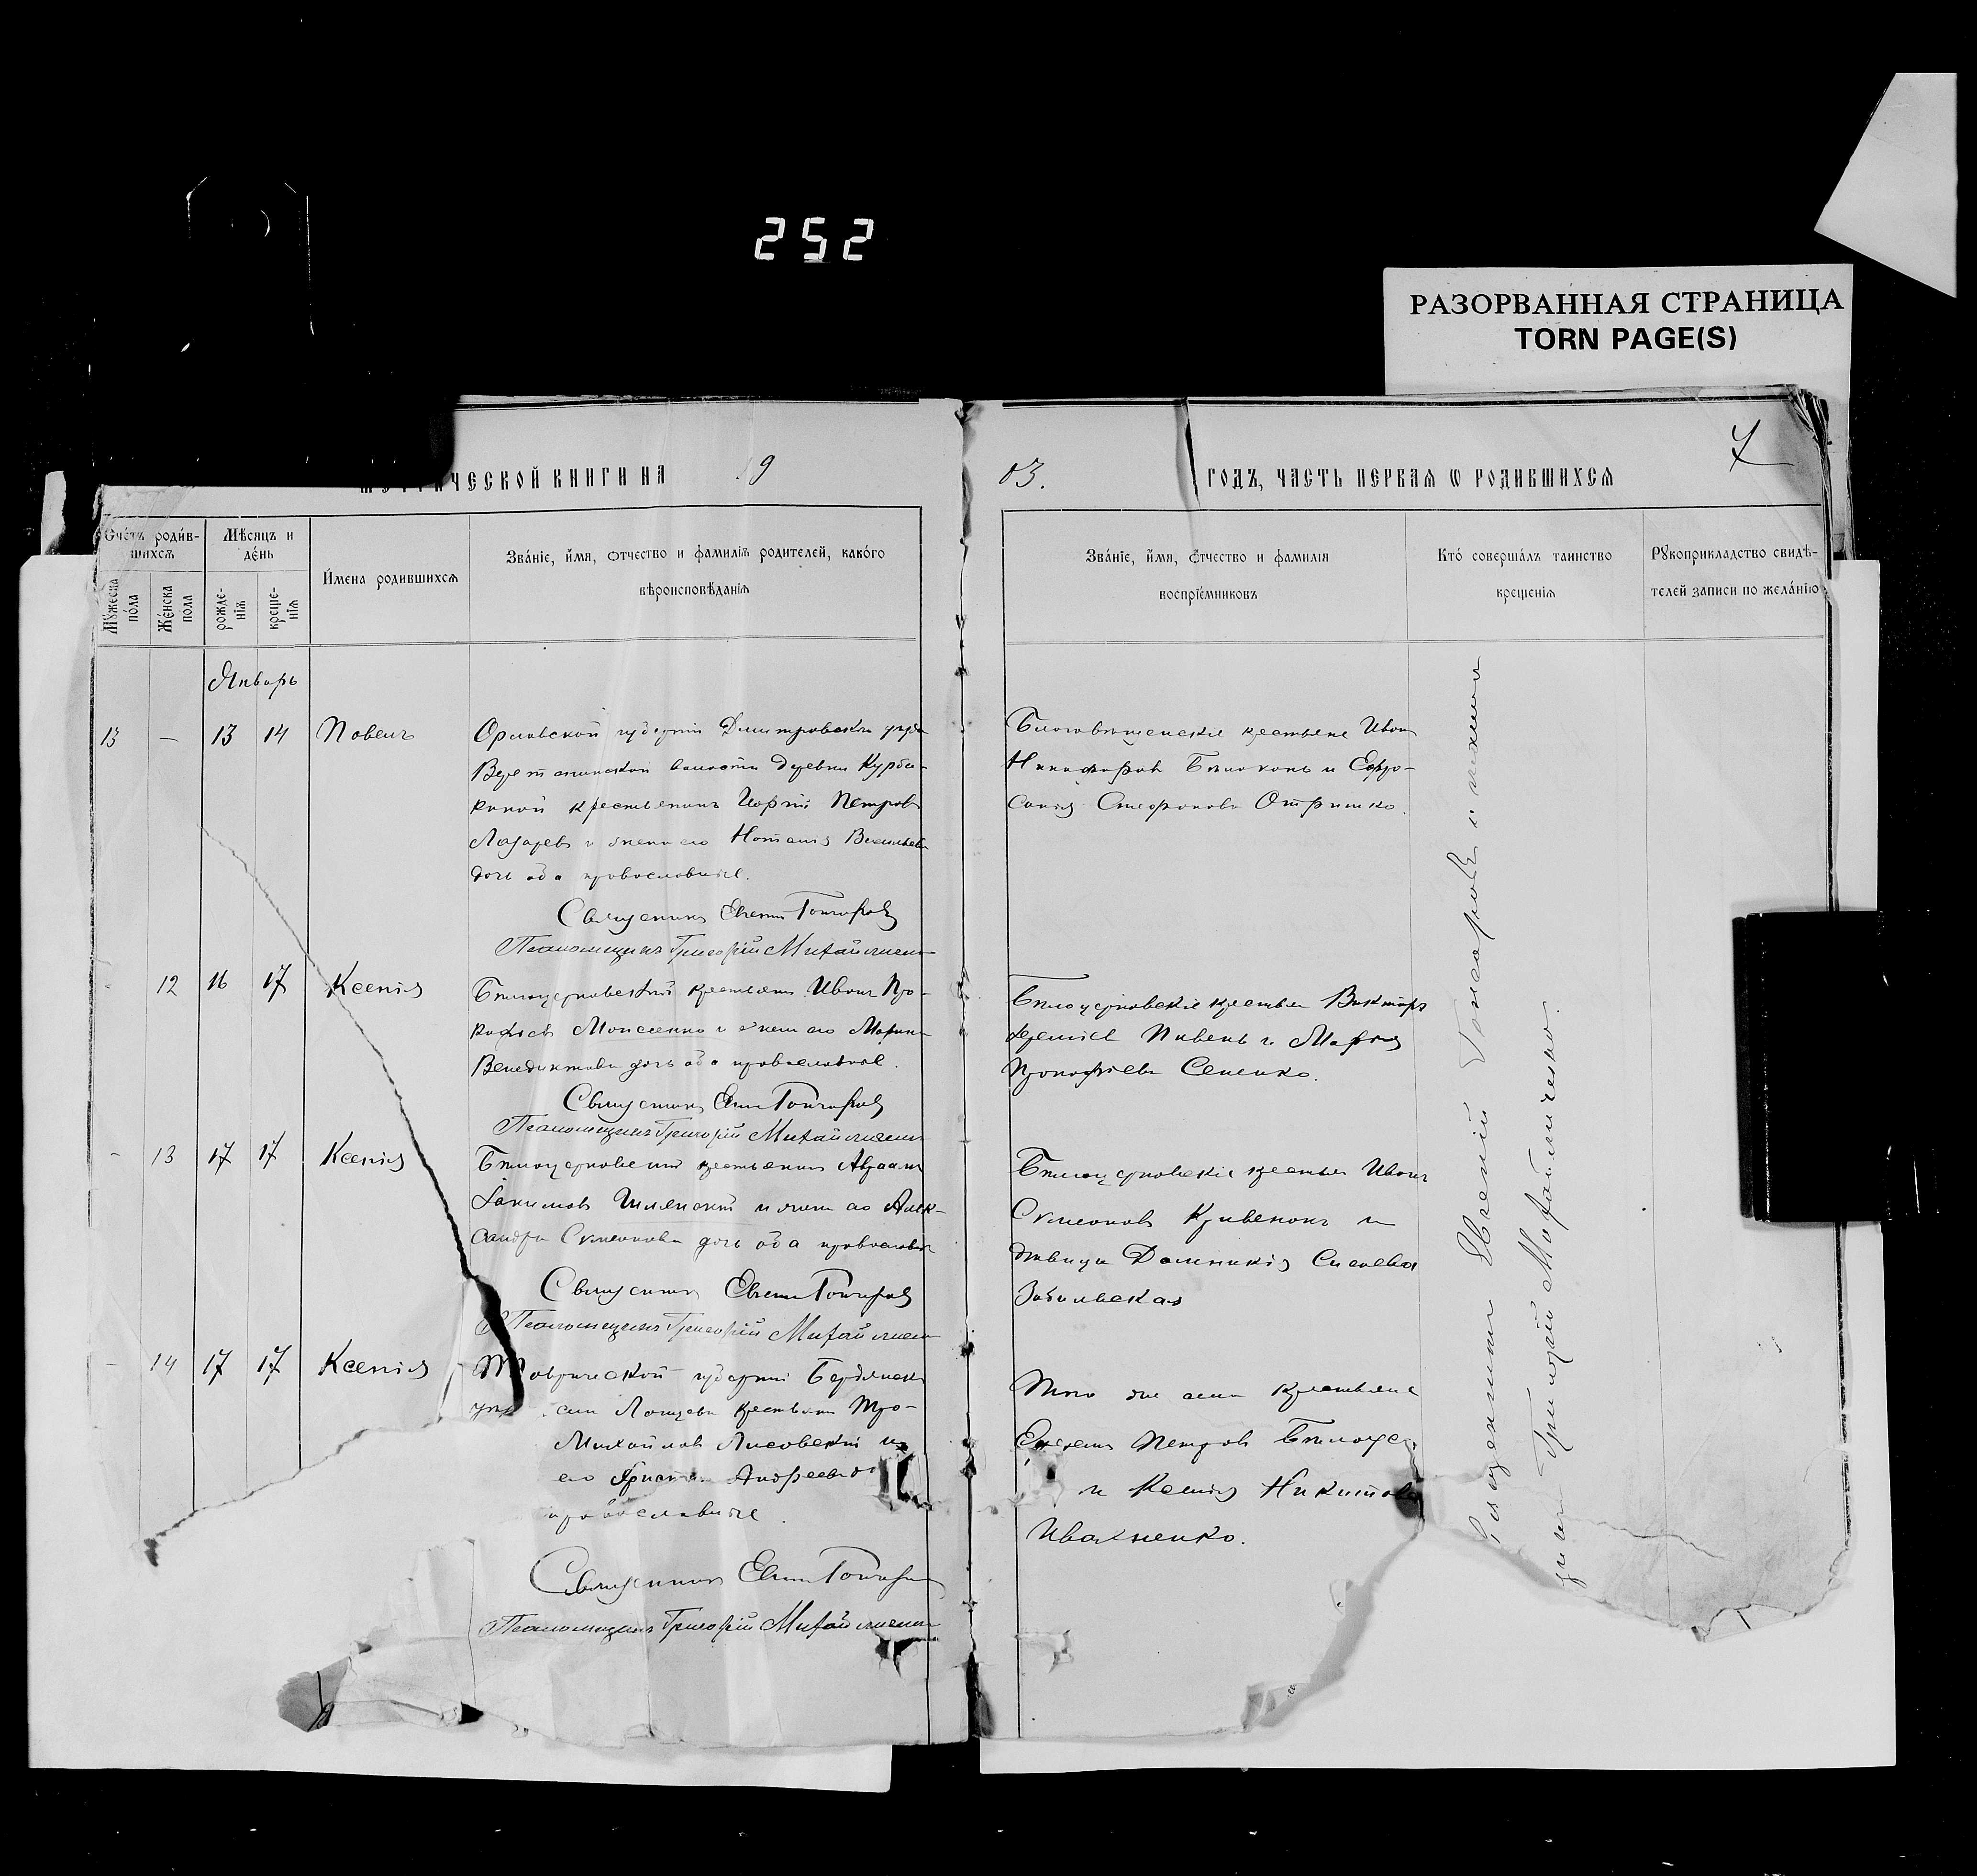 252
РАЗОРВАННАЯ СТРАНИЦА
TORN PAGE(S)
7
ЧЕСКОЙ КНИГИ НА 19
03. ГОДЪ, ЧАСТЬ ПЕРВАЯ Ѡ РОДИВШИХСЯ
Счетъ родив-
шихся
Мѣсяцъ и
день
Мужеска
пола
Женска
пола
рожде-
нія
креще-
нія
Имена родившихся
Званіе, имя, отчество и фамилія родителей, какого
вѣроисповѣданія
Званіе, имя, отчество и фамилія
воспріемниковъ
Кто совершалъ таинство
крещенія
Рукоприкладство свидѣ-
телей записи по желанію
Январь
13 — 13 14 Павелъ
Орловской губерніи Дмитровскаго уѣзда
волости деревни Курба-
киной крестьянинъ Георгій Петровъ
Лазаревъ и жена его Наталія Васильева
дочь оба православные.
Священникъ Евгеній Гончаровъ
Псаломщикъ Григорій Михайличенко
Благовѣщенскіе крестьяне Иванъ
Никифоровъ Бѣлоконь и Евфро-
синія Стефанова Отришко.
12 16 17 Ксенія
Бѣлоцерковскій крестьянинъ Иванъ Про-
кофіевъ Моисеенко и жена его Марина
Венедиктова дочь оба православные.
Священникъ Евгеній Гончаровъ
Псаломщикъ Григорій Михайличенко
Бѣлоцерковскіе крестьяне Викторъ
Пивень и Марфа
Прокофіева Сененко.
13 17 17 Ксенія
Бѣлоцерковскій крестьянинъ Авраамъ
Іакимовъ Шлянскій и жена его Алек-
сандра Симеонова дочь оба православные
Священникъ Евгеній Гончаровъ
Псаломщикъ Григорій Михайличенко
Бѣлоцерковскіе крестьяне Иванъ
Симеоновъ Кривенокъ и
дѣвица Домникія
14 17 17 Ксенія
Таврической губерніи Бердянск
крестьянинъ Тро-
Михайловъ Лисовскій и
его Христина Андреева
православные.
Священникъ Евгеній Гончаровъ
Псаломщикъ Григорій Михайличенко
Того же села крестьяне
Петровъ
и Ксенія Никитова
Ивахненко.
Священникъ Евгеній Гончаровъ и псалом-
щикъ Григорій Михайличенко.